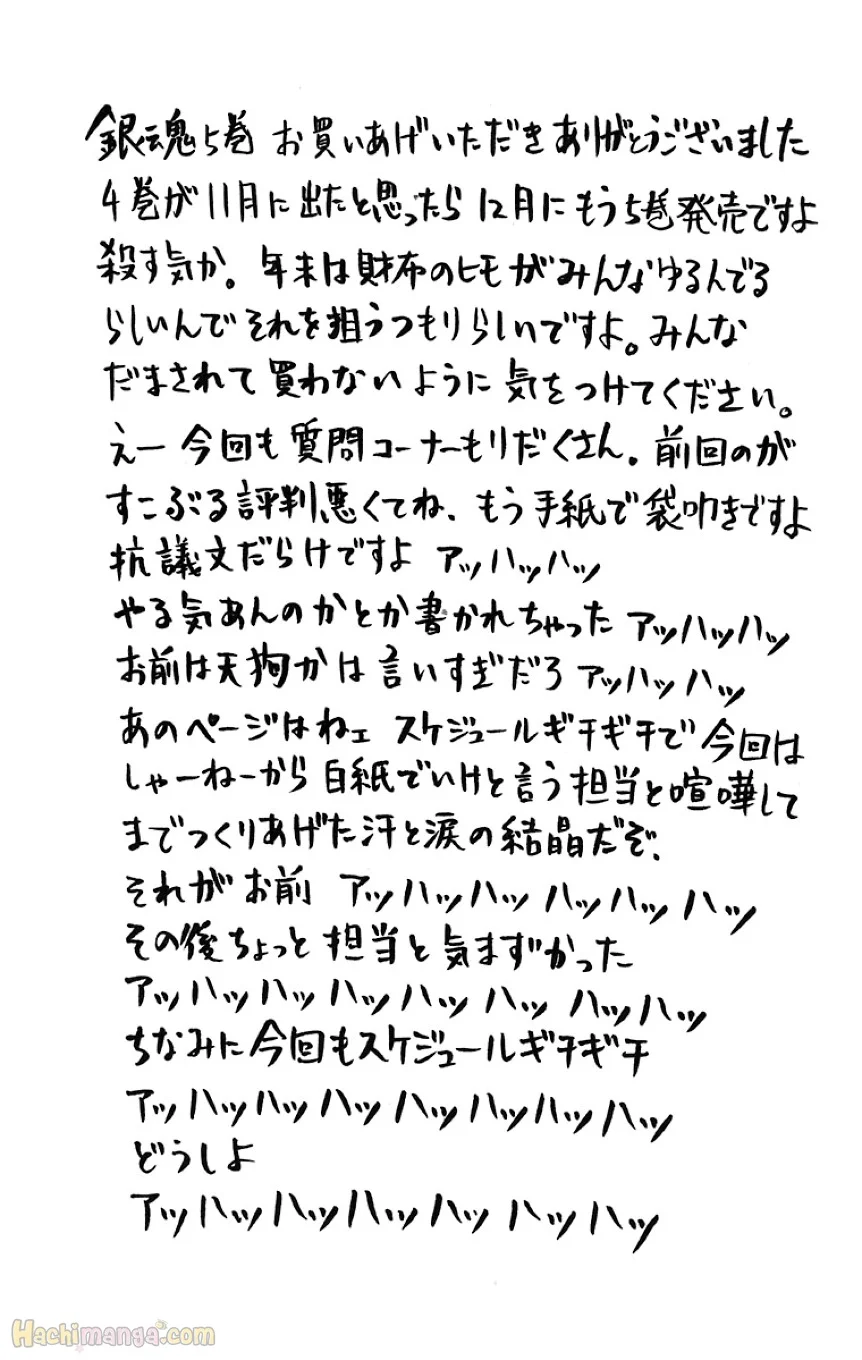 銀魂5巻 お買いあげいただきありがとうございました
4巻が11月に出たと思ったら12月にもう5巻発売ですよ
殺す気か。年末は財布のヒモがみんなゆるんでる
らしいんでそれを狙うつもりらしいですよ。みんな
だまされて買わないように気をつけてください。
えー今回も質問コーナーもりだくさん。前回のが
すこぶる評判悪くてね、もう手紙で袋叩きですよ
抗議文だらけですよ アッハッハッ
やる気あんのかとか書かれちゃった アッハッハッ
お前は天狗かは言いすぎだろ アッハッハッ
あのページはねェ スケジュールギチギチで今回は
しゃーねーから白紙でいけと言う担当と喧嘩して
までつくりあげた汗と涙の結晶だぞ、
それがお前 アッハッハッ ハッハッ ハッ
その後ちょっと担当と気まずかった
アッハッハッ ハッハッ ハッ ハッハッ
ちなみに今回もスケジュールギチギチ
アッ ハッハッ ハッ ハッハッハッ ハッ
どうしよ
アッハッハッハッハッ ハッハッ
Hachimanga.com